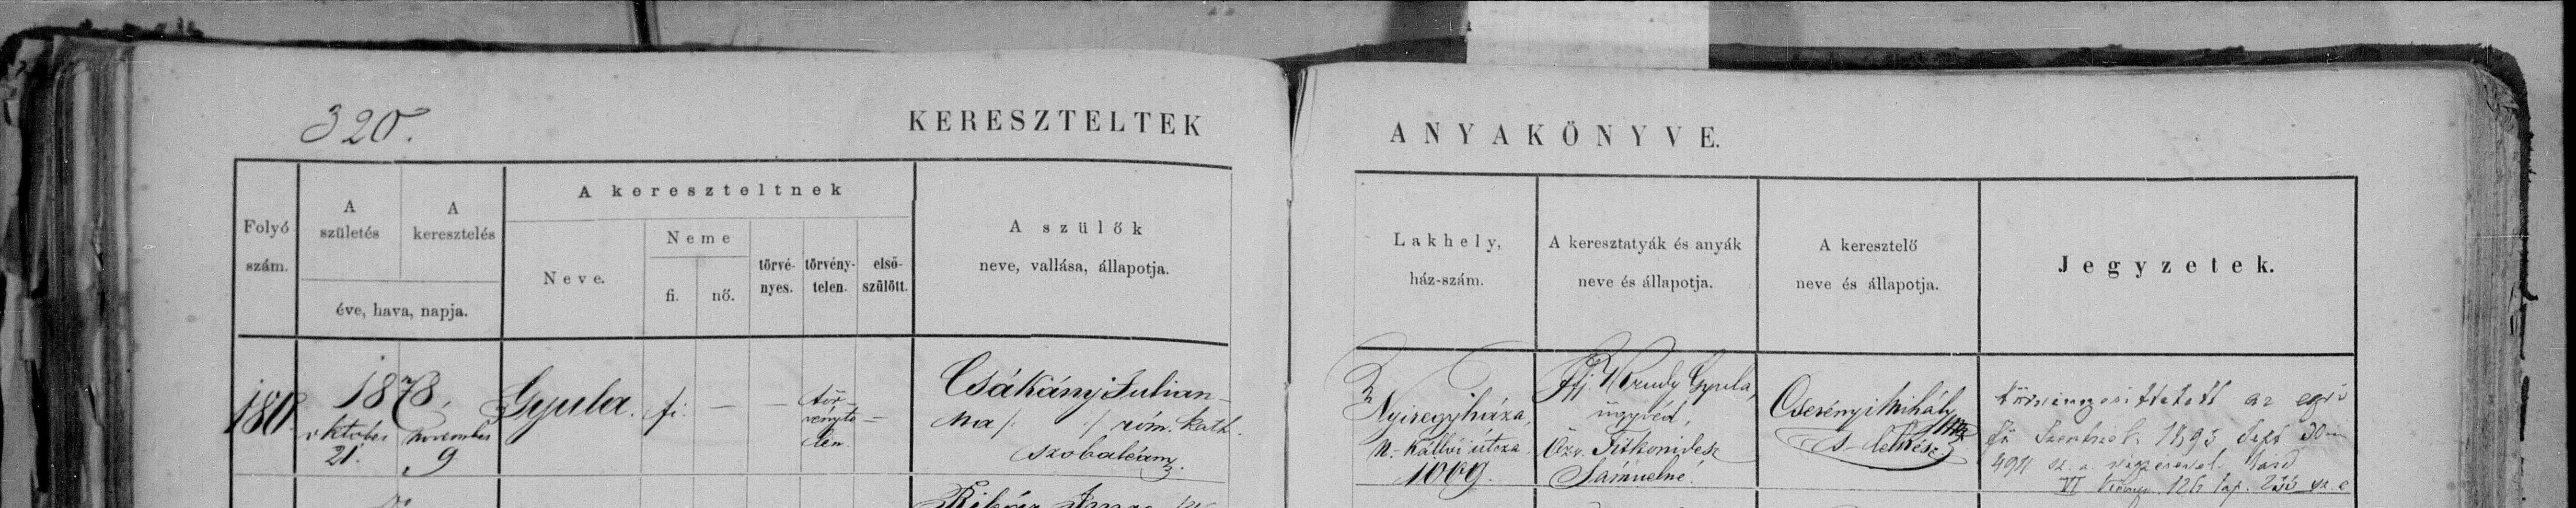 320.
KERESZTELTEK ANYAKÖNYVE.
Folyó szám.
A születés
A keresztelés
éve, hava, napja.
A kereszteltnek
Neve.
Neme
fi.
nő.
törvé-
nyes.
törvény-
telen.
első-
szülött.
A szülők
neve, vallása, állapotja.
Lakhely,
ház-szám.
A keresztatyák és anyák
neve és állapotja.
A keresztelő
neve és állapotja.
Jegyzetek.
180.
1878.
oktober
21.
november
9.
Gyula.
fi.
—
—
tör-
vényte-
len.
Csákányi Julian-
na /: :/ róm. kath.
szobaleány.
Nyiregyháza,
N.-Kállói útcza
1069.
Ifj. Krudy Gyula,
ügyvéd,
Özv.
Sámuelné.
Cserényi Mihály
s. lelkész
törvényesittetett az egri
Szentszék 1893 Sept 30
4911 sz. a. végzésével. Lásd
VI 126 lap. 233 sz. a